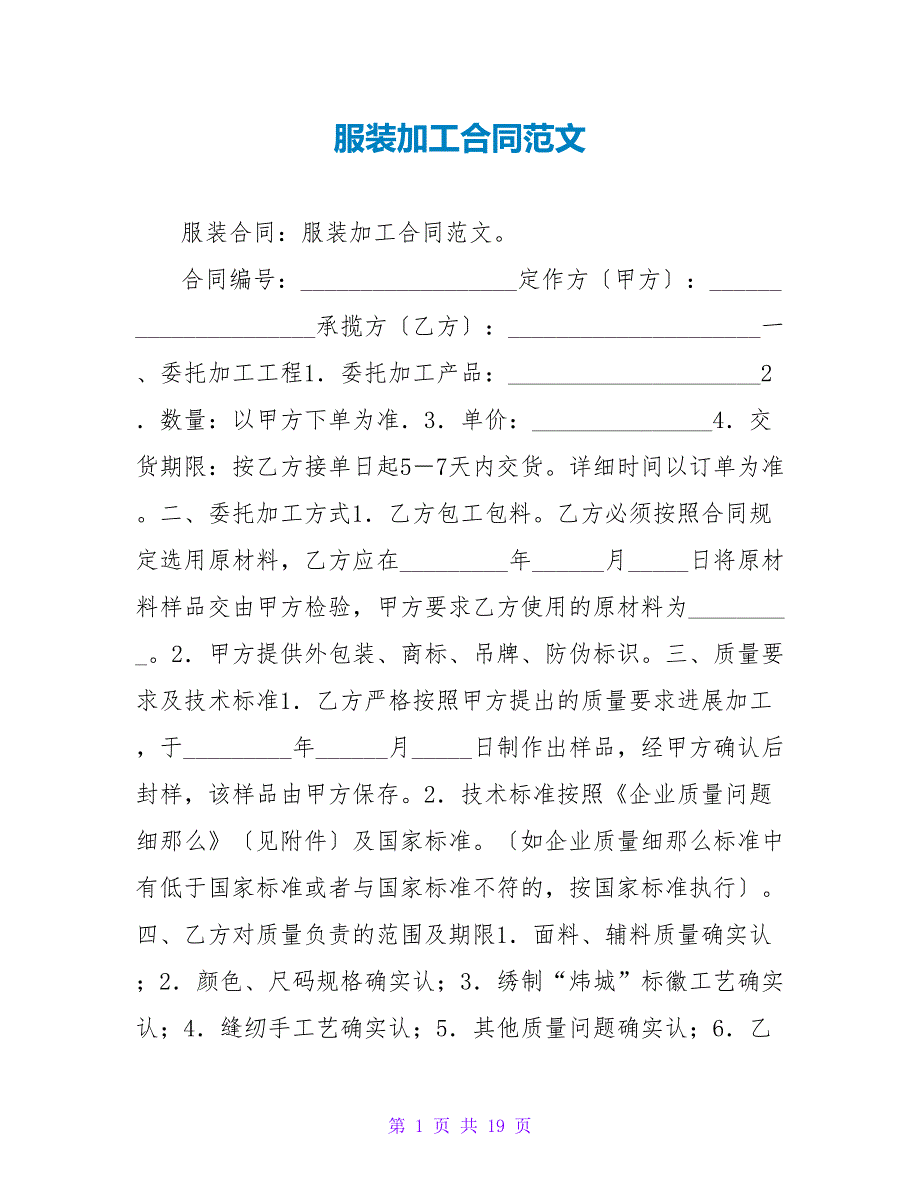 服装加工合同范文
服装合同：服装加工合同范文。
合同编号：__________________定作方〔甲方〕：______
_______________承揽方〔乙方〕：_____________________一
、委托加工工程1．委托加工产品：_____________________2
．数量：以甲方下单为准．3．单价：_______________4．交
货期限：按乙方接单日起5－7天内交货。详细时间以订单为准
。二、委托加工方式1．乙方包工包料。乙方必须按照合同规
定选用原材料，乙方应在_________年______月_____日将原材
料样品交由甲方检验，甲方要求乙方使用的原材料为________
_。2．甲方提供外包装、商标、吊牌、防伪标识。三、质量要
求及技术标准1．乙方严格按照甲方提出的质量要求进展加工
，于_________年______月_____日制作出样品，经甲方确认后
封样，该样品由甲方保存。2．技术标准按照《企业质量问题
细那么》〔见附件〕及国家标准。〔如企业质量细那么标准中
有低于国家标准或者与国家标准不符的，按国家标准执行〕。
四、乙方对质量负责的范围及期限1．面料、辅料质量确实认
；2．颜色、尺码规格确实认；3．绣制“炜城”标徽工艺确实
认；4．缝纫手工艺确实认；5．其他质量问题确实认；6．乙
第 1 页 共 19 页